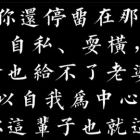 你還停留在那
自私、耍橫,
也給不了老婆
以自我為中心
這輩子也就